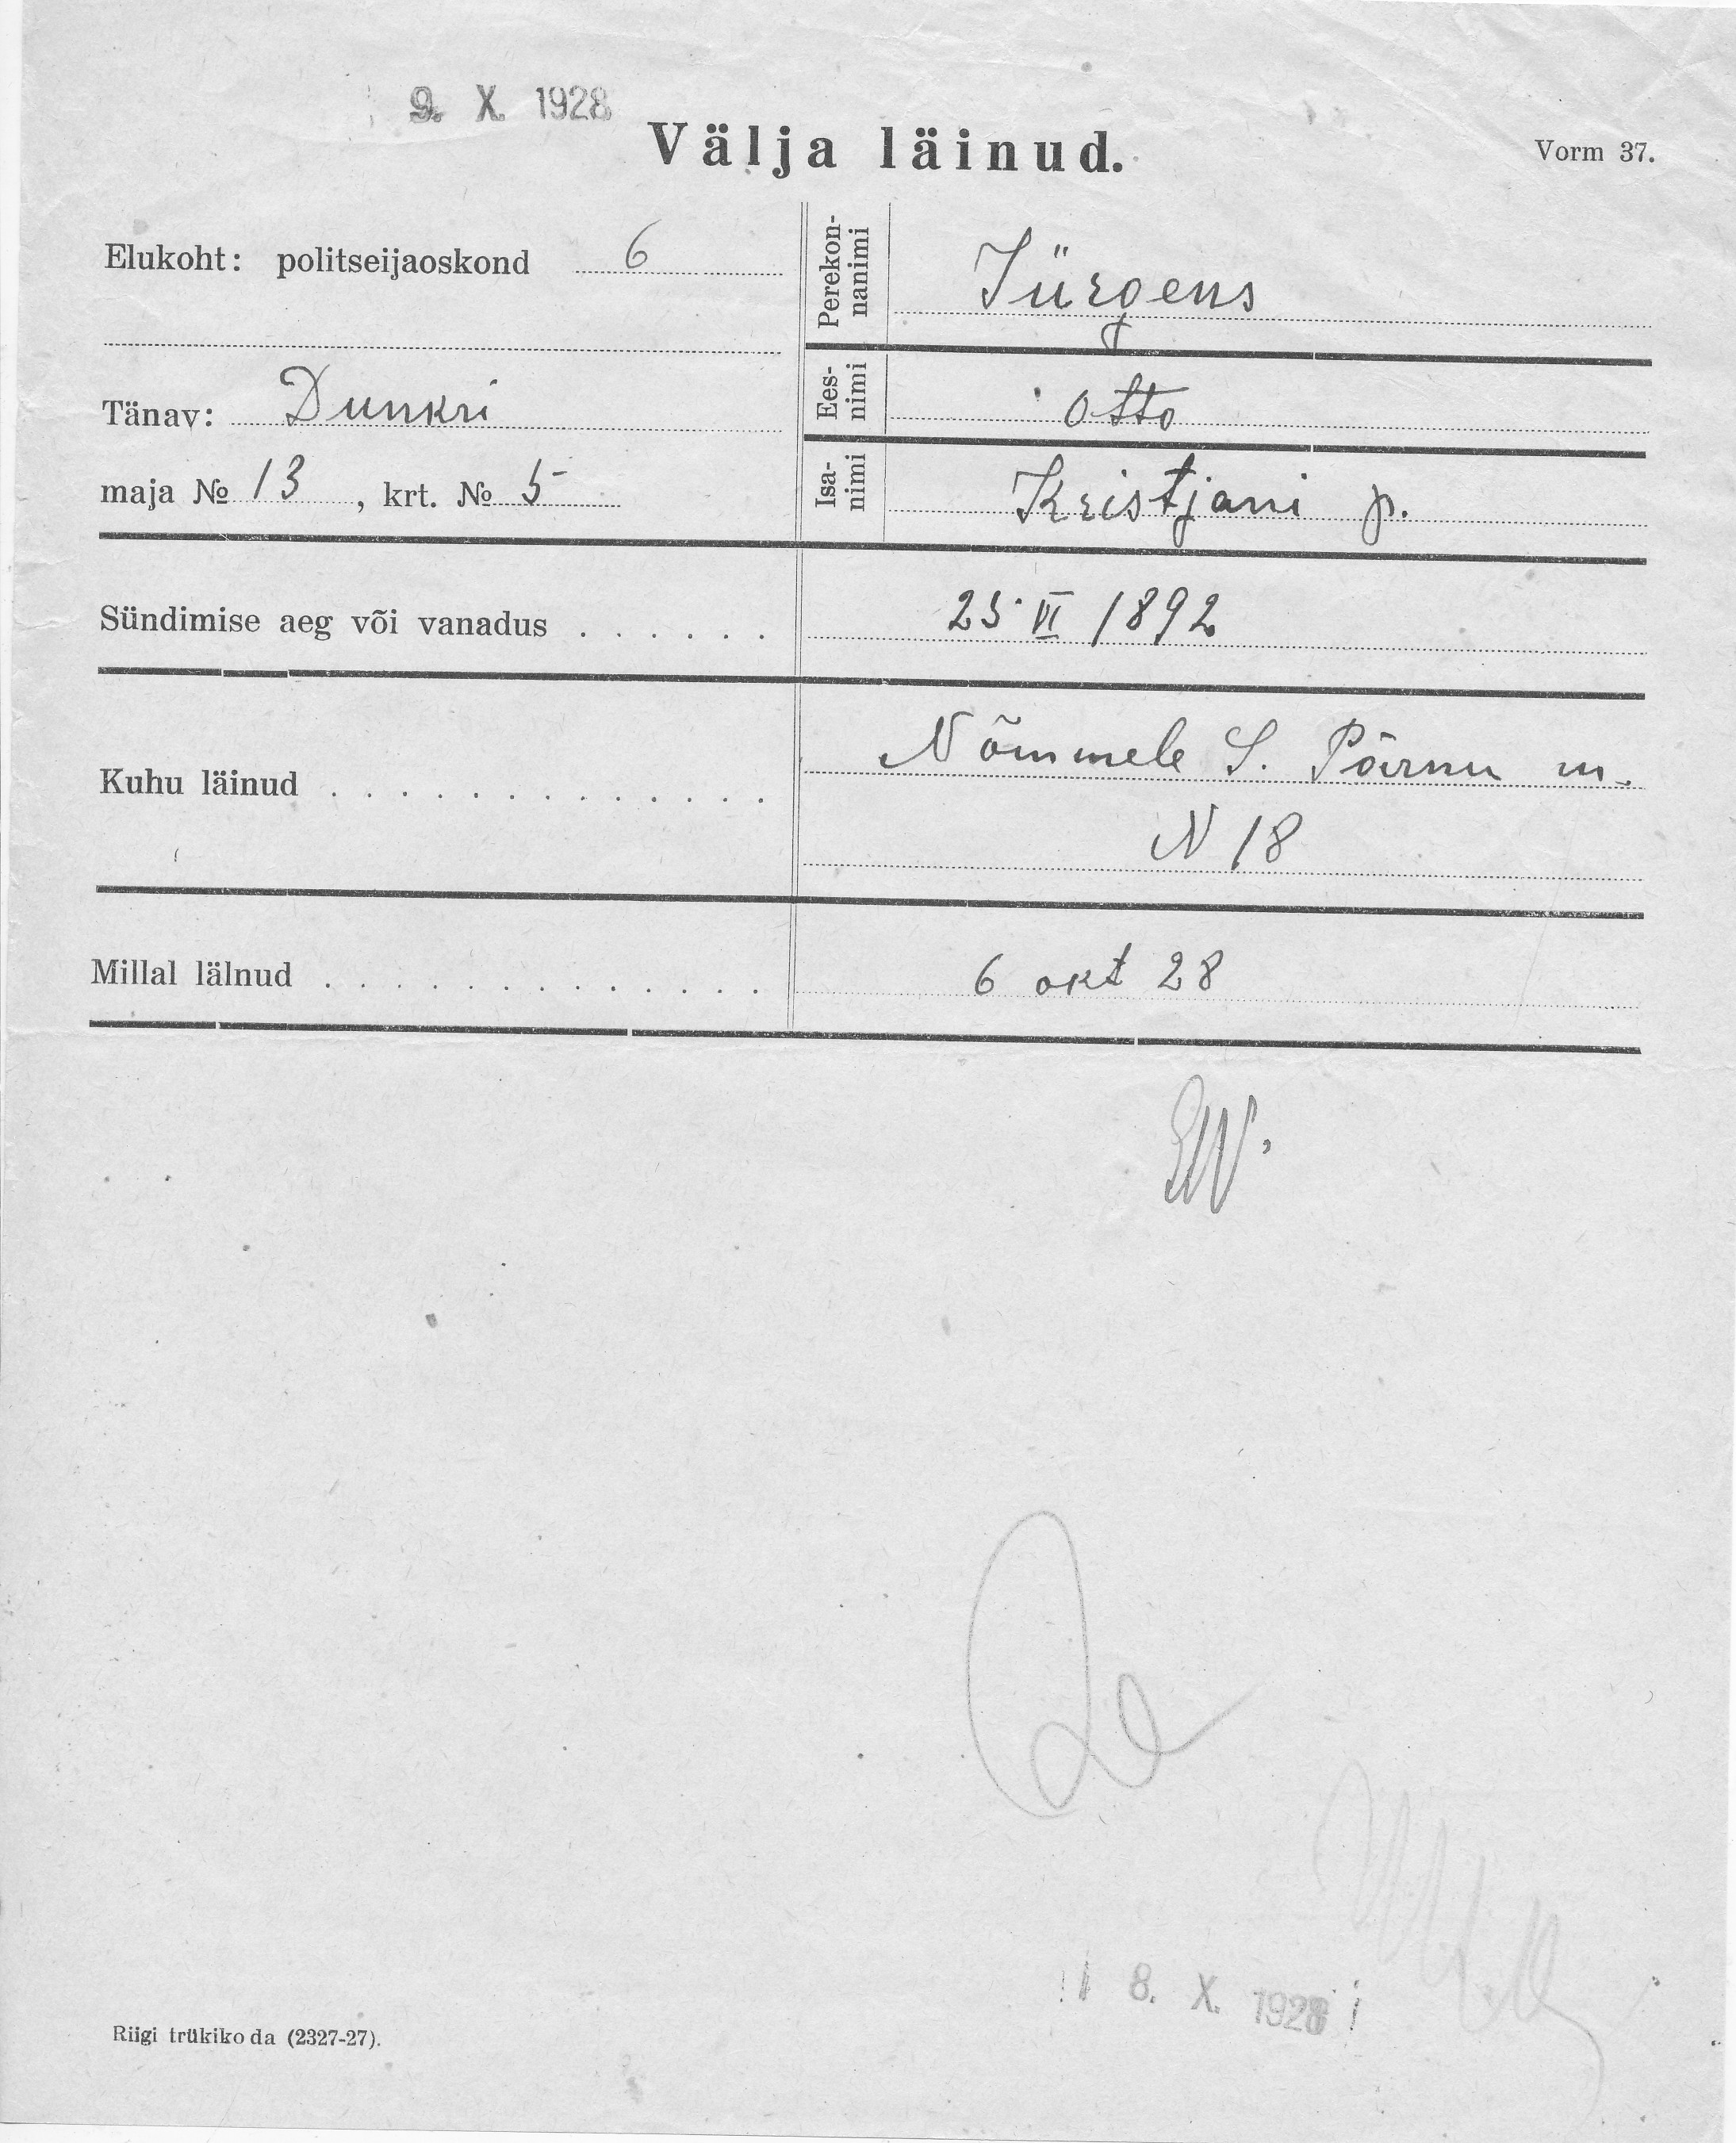 9. X. 1928
Välja läinud.
Vorm 37.
Elukoht: politseijaoskond 6
Perekon-
nanimi
Jürgens
Tänav: Dunkri
Ees-
nimi
Otto
maja № 13, krt. № 5
Isa-
nimi
Kristjani p.
Sündimise aeg või vanadus . . . . . .
25 VI 1892
Kuhu läinud . . . . . . . . . . . . .
Nõmmele S. Pärnu m.
N 18
Millal lälnud . . . . . . . . . . . . .
6 okt 28
8. X. 1928
Riigi trükikoda (2327-27).